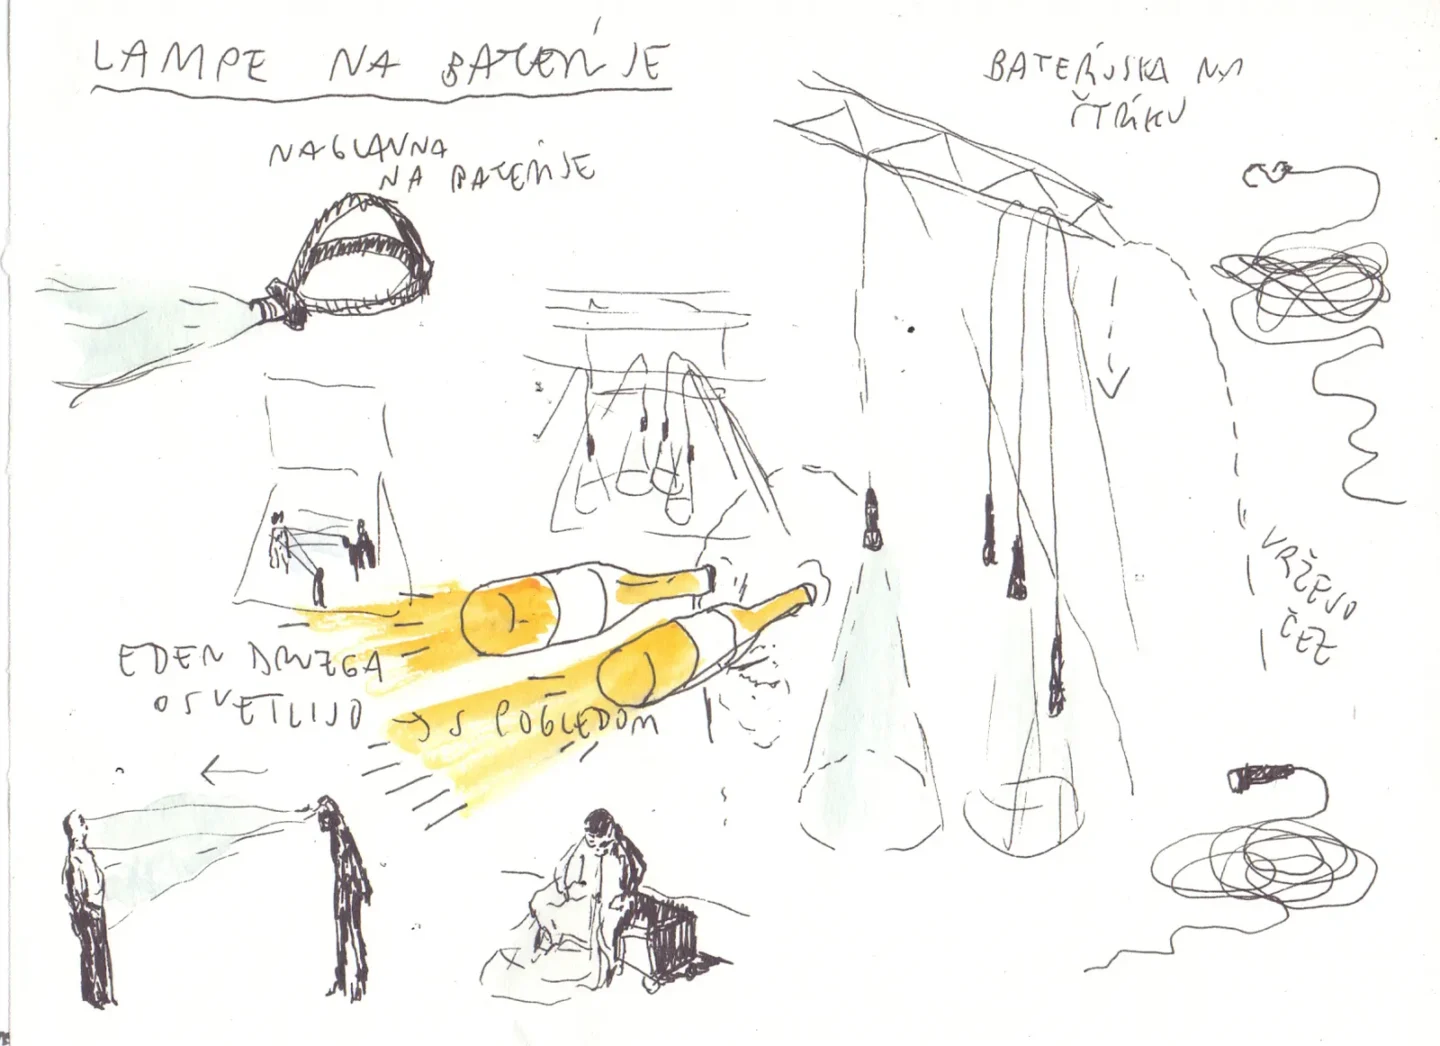 LAMPE NA BATERIJE
NAGLAVNA
NA BATERIJE
BATERIJSKA NA
ŠTRIKU
VRŽEJO
ČEZ
EDEN DRUZGA
OSVETLIJO → S POGLEDOM